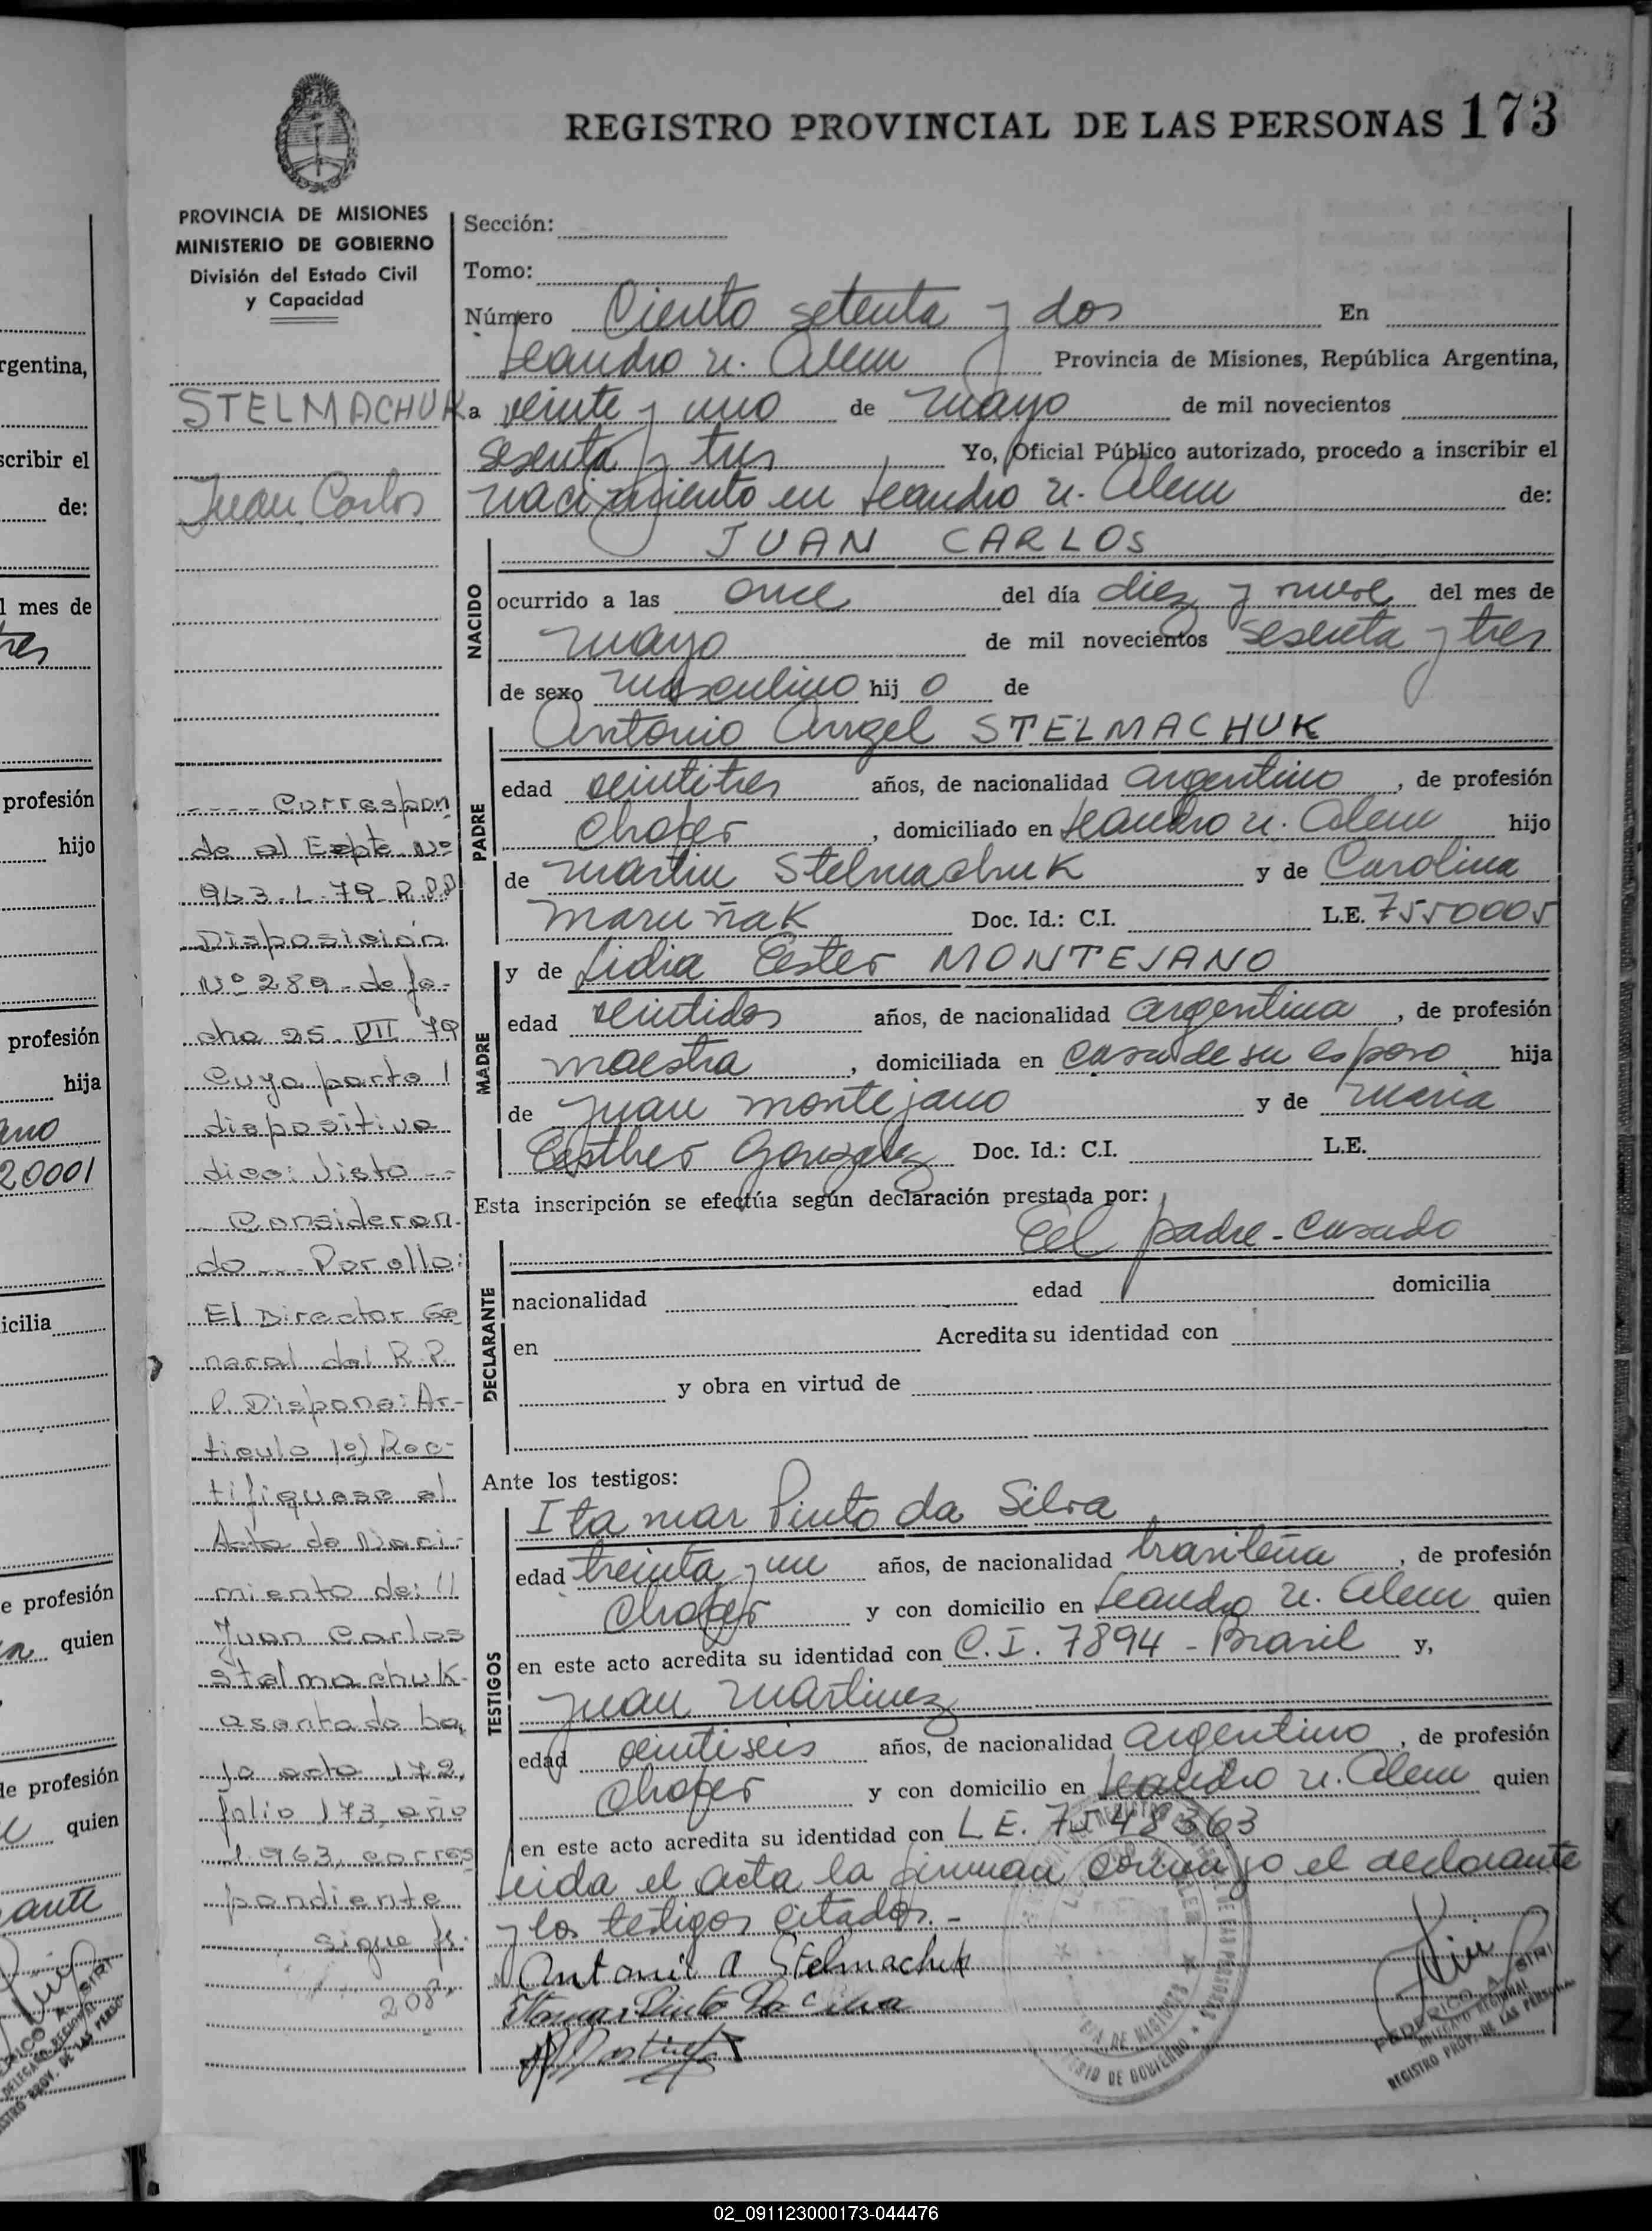 REGISTRO PROVINCIAL DE LAS PERSONAS 173
PROVINCIA DE MISIONES
MINISTERIO DE GOBIERNO
División del Estado Civil
y Capacidad
STELMACHUK
Juan Carlos
---- Correspon
de al Expte Nº
963-L-79-R.P.P
Disposición
Nº 289 - de fe-
cha 25-VII-79
Cuya parte /
dispositiva
dice: Visto --
- Consideran-
do --- Por ello:
El Director Ge
neral del R.P.
P. Dispone: Ar-
ticulo 1º) Rec-
tifiquese el
Acta de Naci-
miento de: //
Juan Carlos
Stelmachuk-
asentado ba-
jo acta 172,
folio 173, año
1.963, corres
pondiente
sigue fs.
208,
Sección:
Tomo:
Número Ciento setenta y dos En
Leandro N. Alem Provincia de Misiones, República Argentina,
a veinte y uno de mayo de mil novecientos
sesenta y tres Yo, Oficial Público autorizado, procedo a inscribir el
nacimiento en Leandro N. Alem de:
NACIDO
JUAN CARLOS
ocurrido a las once del día diez y nueve del mes de
mayo de mil novecientos sesenta y tres
de sexo masculino hijo de
PADRE
Antonio Angel STELMACHUK
edad veintitres años, de nacionalidad argentino, de profesión
chofer, domiciliado en Leandro N. Alem hijo
de Martin Stelmachuk y de Carolina
Maruñak Doc. Id.: C.I. L.E. 7550005
MADRE
y de Lidia Ester MONTEJANO
edad veintidos años, de nacionalidad argentina, de profesión
maestra, domiciliada en casa de su esposo hija
de Juan Montejano y de Maria
Esther Gonzalez Doc. Id.: C.I. L.E.
Esta inscripción se efectúa según declaración prestada por:
DECLARANTE
El padre - casado
nacionalidad edad domicilia
en Acredita su identidad con
y obra en virtud de
Ante los testigos:
TESTIGOS
Itamar Pinto da Silva
edad treinta y un años, de nacionalidad brasileña, de profesión
chofer y con domicilio en Leandro N. Alem quien
en este acto acredita su identidad con C.I. 7894 - Brasil y,
Juan Martinez
edad veintiseis años, de nacionalidad argentino, de profesión
chofer y con domicilio en Leandro N. Alem quien
en este acto acredita su identidad con L.E. 7548363
Leida el acta la firman conmigo el declarante
y los testigos citados.-
Antonio A Stelmachuk
Itamar Pinto Da Silva
FEDERICO A. SIRI
DELEGADO REGIONAL
REGISTRO PROV. DE LAS PERSONAS
rgentina,
scribir el
de:
l mes de
tres
profesión
hijo
profesión
hija
ano
20001
icilia
e profesión
quien
de profesión
quien
ante
02_091123000173-044476